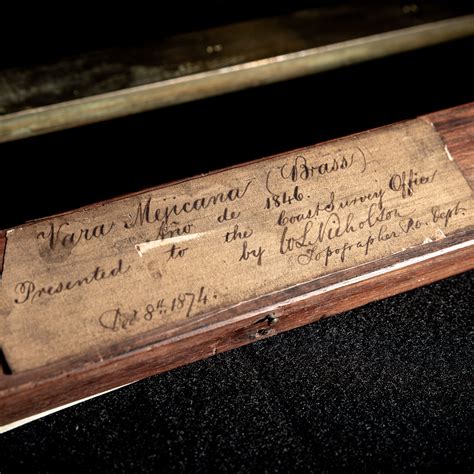 Vara Mejicana (Brass)
Año de 1846.
Presented to the Coast Survey Office
by W. L. Nicholson
Topographer P.O. Dept.
Oct 8th. 1874.